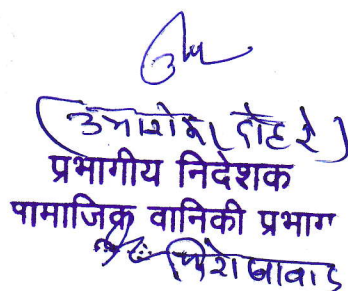 (अशोक दोहरे)
प्रभागीय निदेशक
सामाजिक वानिकी प्रभाग
फिरोजाबाद